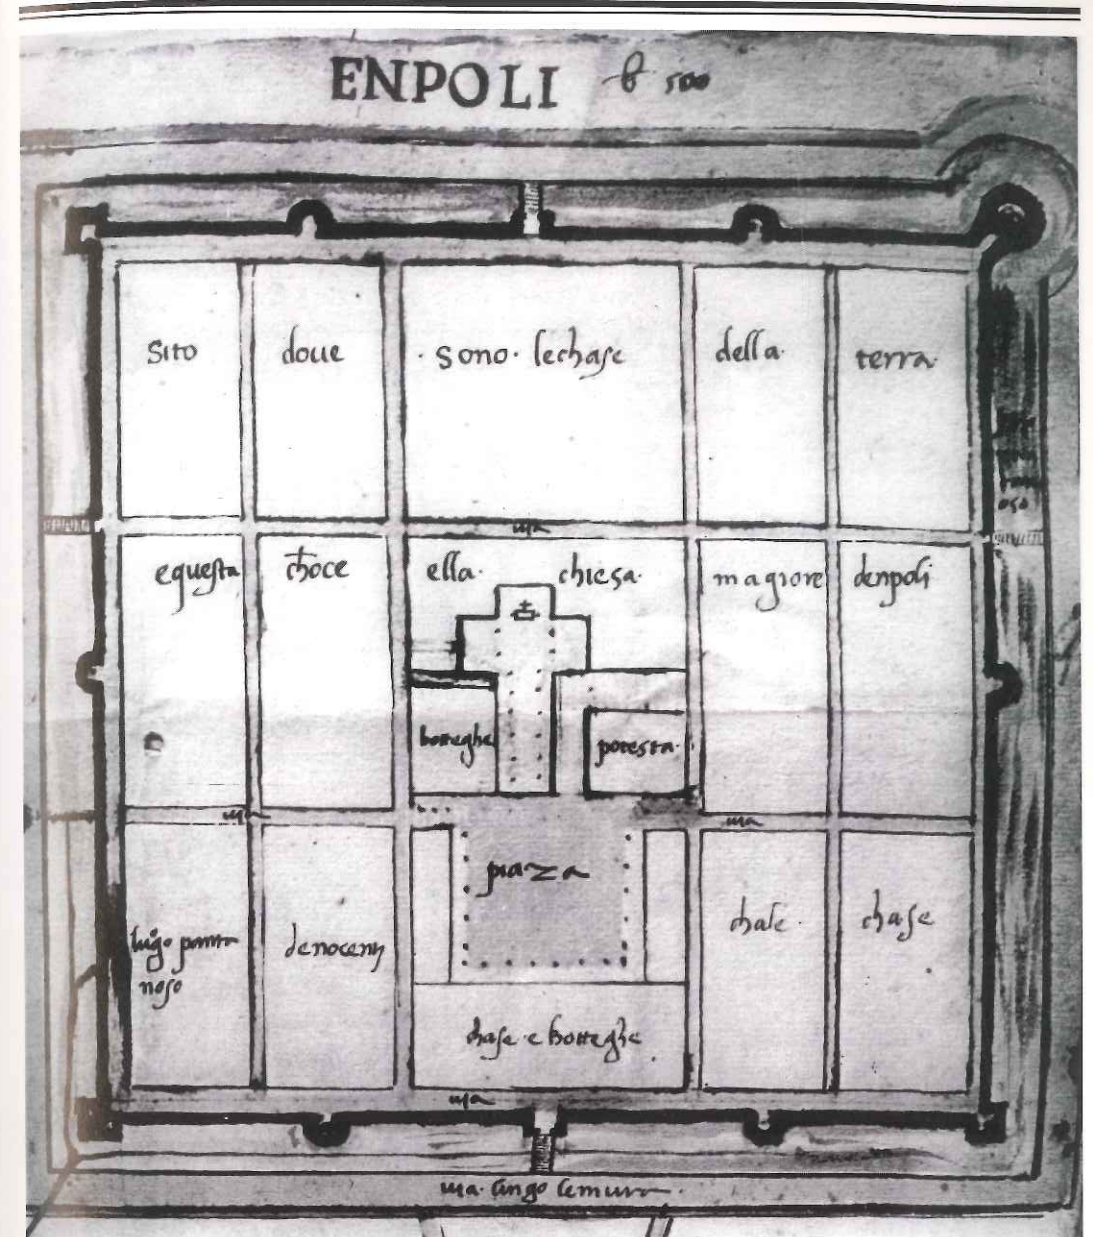 ENPOLI b 500
sito doue · sono · lechase della · terra ·
uia
equesta choce ella · chiesa · magiore denpoli
botteghe potesta ·
uia uia
piaza
luogo panta denocenti chase · chase
noso
chase · e botteghe
uia
uia · lungo lemura